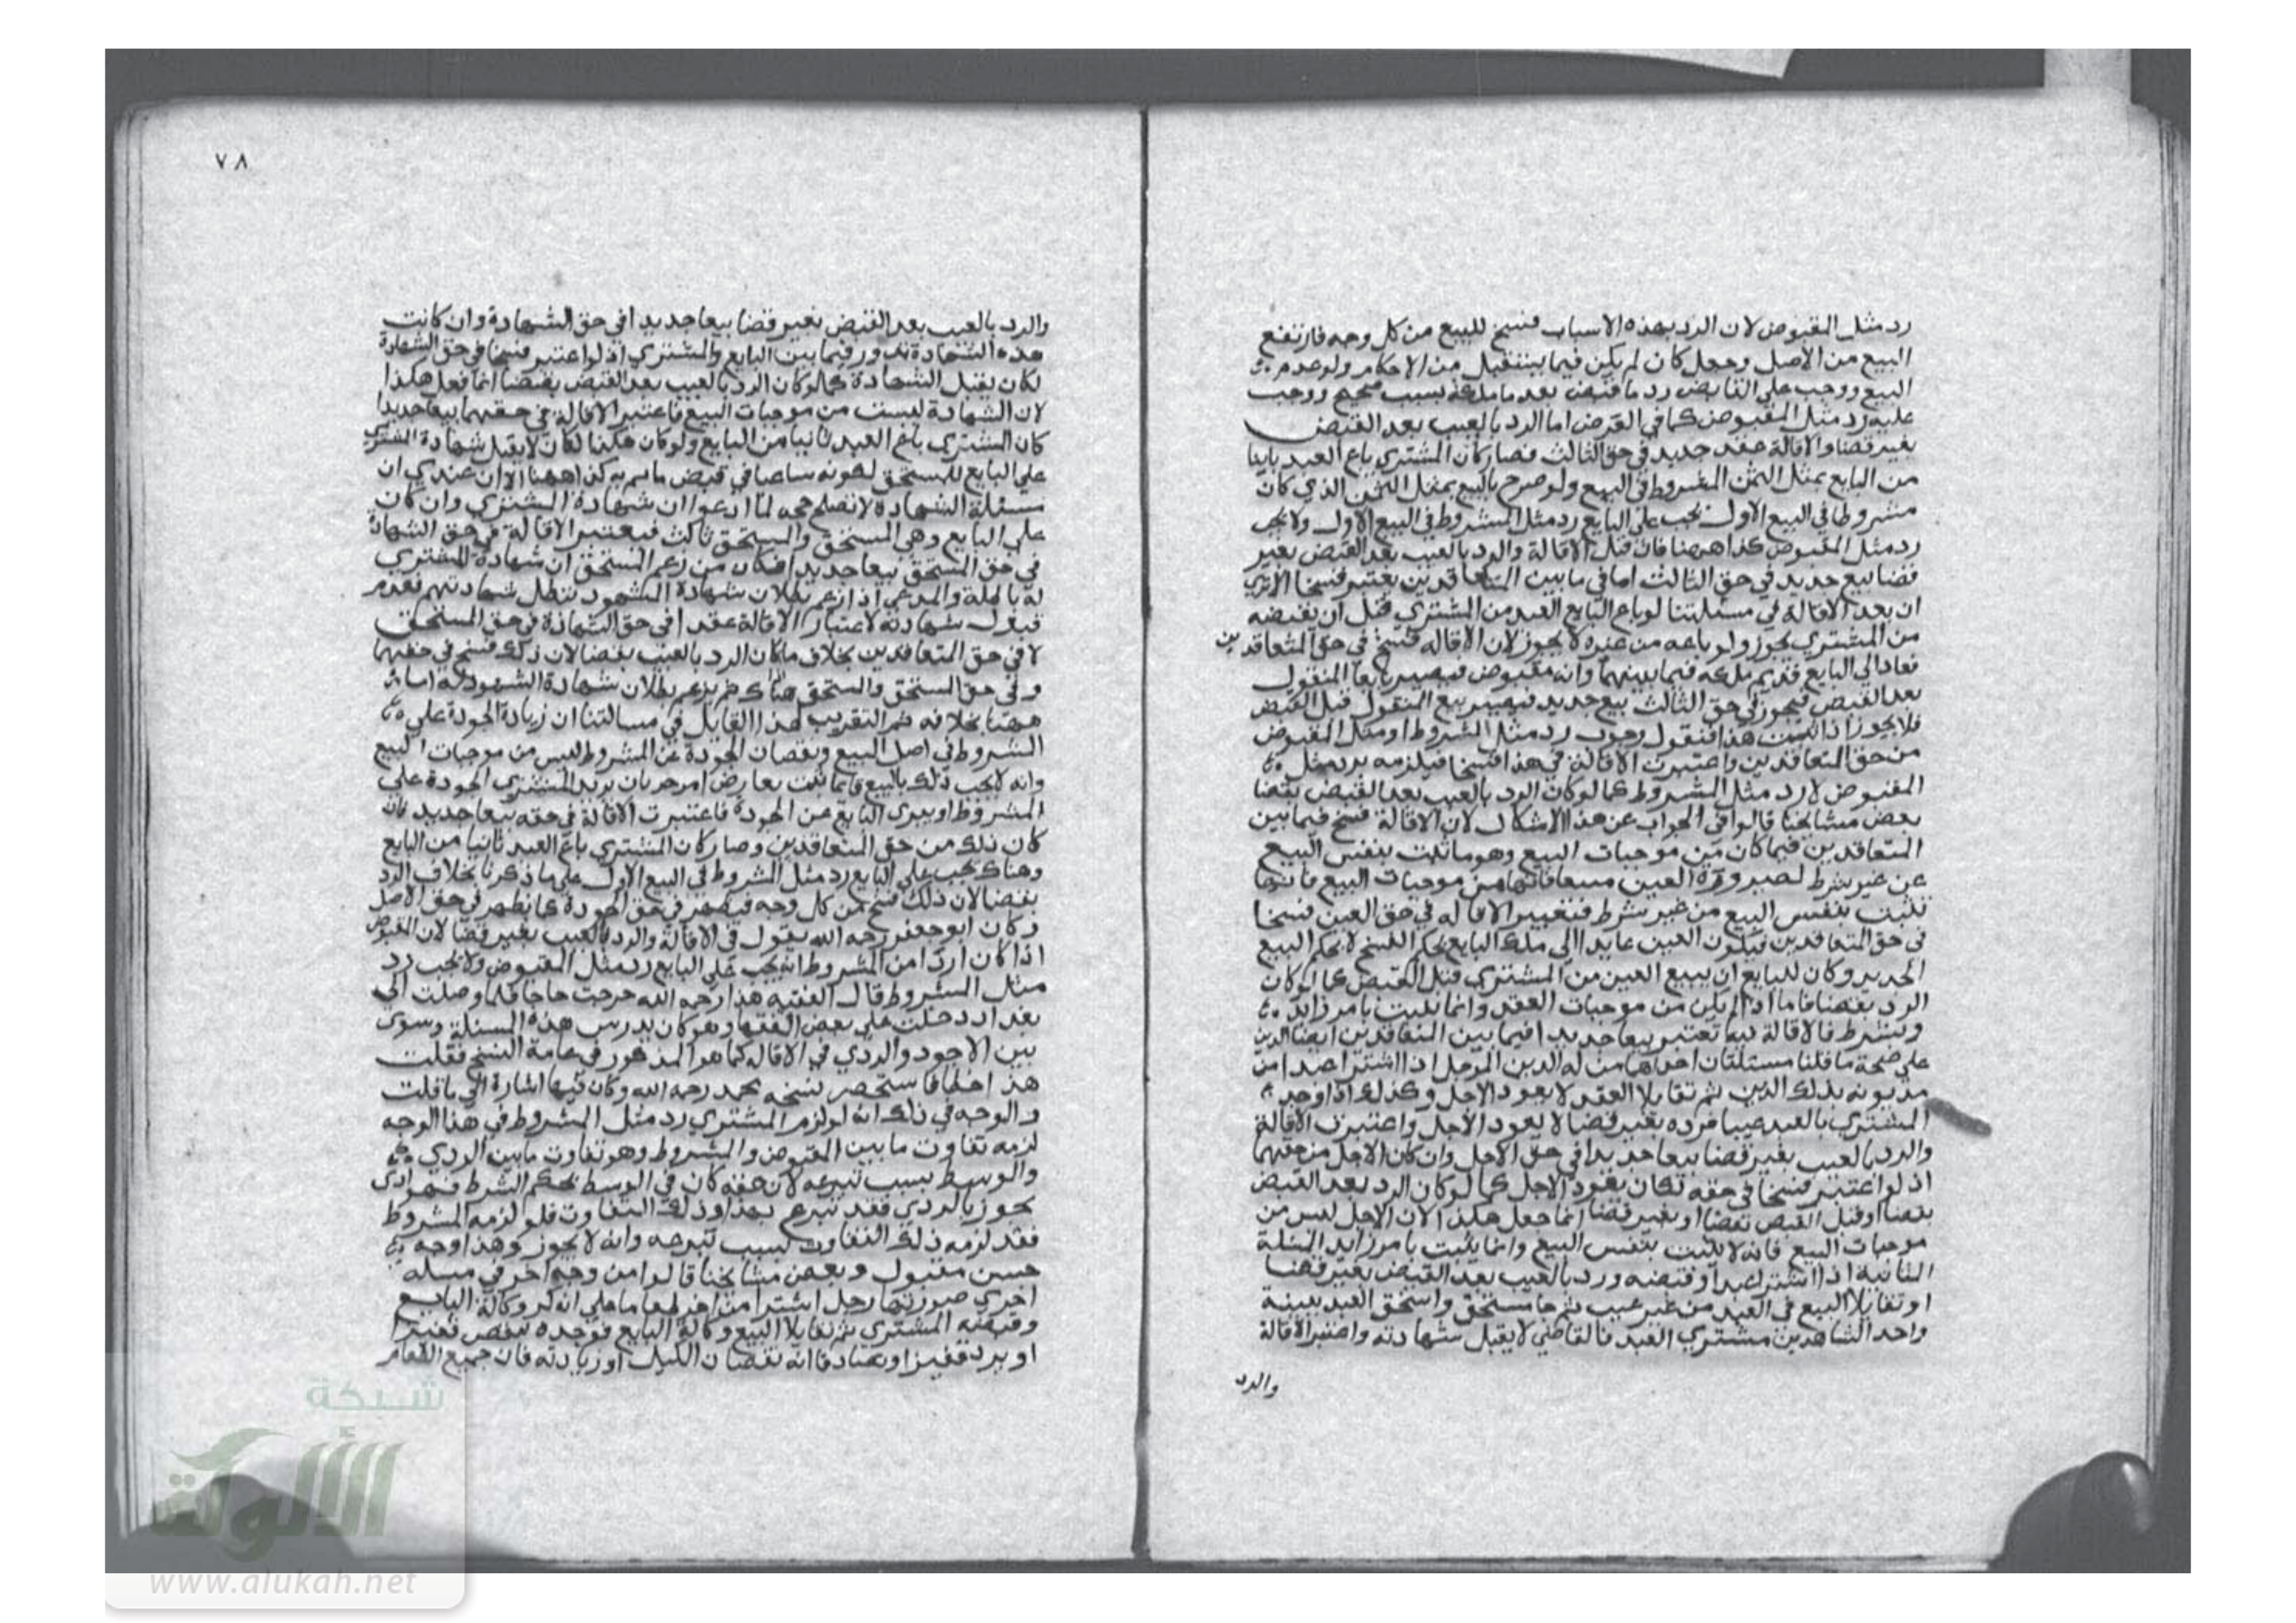 رد مثل المقبوض لان الرد بهذه الاسباب فسخ للبيع من كل وجه فارتفع
البيع من الاصل وجعل كان لم يكن فيما يستقبل من الاحكام ولو عدم
البيع ووجب على القابض رد ما قبض بعد ما ملكه بسبب صحيح ووجب
عليه رد مثل المقبوض كما في القرض اما الرد بالعيب بعد القبض
بغير قضا والاقالة عقد جديد في حق الثالث فصار كان المشتري باع العبد ثانيا
من البايع بمثل الثمن المشروط في البيع ولو صرح بالبيع بمثل الثمن الذي كان
مشروطا في البيع الاول يجب على البايع رد مثل المشروط في البيع الاول ولا يجب
رد مثل المقبوض كذا ههنا فان قيل الاقالة والرد بالعيب بعد القبض بغير
قضا بيع جديد في حق الثالث اما في ما بين المتعاقدين يعتبر فسخا الا ترى
ان بعد الاقالة في مسئلتنا لو باع البايع العبد من المشتري قبل ان يقبضه
من المشتري يجوز ولو باعه من غيره لا يجوز لان الاقاله فسخ في حق المتعاقدين
فعاد الى البايع قديم ملكه فيما بينهما وانه مقبوض فيصير بايعا المنقول
بعد القبض فيجوز في حق الثالث بيع جديد فيصير بيع المنقول قبل القبض
فلا يجوز اذا ثبت هذا فنقول وجوب رد مثل المشروط او مثل المقبوض
من حق المتعاقدين واعتبرت الاقالة في هذا فسخا فيلزمه رد مثل
المقبوض لا رد مثل المشروط كما لو كان الرد بالعيب بعد القبض بقضا
بعض مشايخنا قالوا في الجواب عن هذا الاشكال لان الاقالة فسخ فيما بين
المتعاقدين فيما كان من موجبات البيع وهو ما ثبت بنفس البيع
عن غير شرط لصيرورة العين من موجبات البيع فانها
تثبت بنفس البيع من غير شرط فتعتبر الاقاله في حق العين فسخا
في حق المتعاقدين فيكون العين عايدا الى ملك البايع بحكم الفسخ لا بحكم البيع
الجديد وكان للبايع ان يبيع العين من المشتري قبل القبض كما لو كان
الرد بقضا فاما اذا لم يكن من موجبات العقد وانما يثبت بامر زايد
وبشرط فالاقالة فيه تعتبر بيعا جديدا فيما بين المتعاقدين ايضا
على صحة ما قلنا مسئلتان احداهما من له الدين المؤجل اذا اشترا من
مديونه بذلك الدين ثم تقايلا العقد لا يعود الاجل وكذلك اذا وجد
المشتري بالعبد عيبا فرده بغير قضا لا يعود الاجل واعتبرت الاقالة
والرد بالعيب بغير قضا بيعا جديدا في حق الاجل وان كان الاجل من حقهما
اذ لو اعتبر فسخا في حقه لكان يعود الاجل كما لو كان الرد بعد القبض
بقضا او قبل القبض بقضا او بغير قضا انما جعل هكذا لان الاجل ليس من
موجبات البيع فانه لا يثبت بنفس البيع وانما يثبت بامر زايد المسئلة
الثانية اذا اشترا عبدا وقبضه ورد بالعيب بعد القبض بغير قضا
او تقايلا البيع في العبد من غير عيب ثم جا مستحق واستحق العبد ببينة
واحد الشاهدين مشتري العبد فالقاضي لا يقبل شهادته واعتبر الاقالة
والرد
٧٨
والرد بالعيب بعد القبض بغير قضا بيعا جديدا في حق الشهادة وان كانت
هذه الشهادة تدور فيما بين البايع والمشتري اذ لو اعتبر فسخا في حق الشهادة
لكان يقبل الشهادة كما لو كان الرد بالعيب بعد القبض بقضا انما فعل هكذا
لان الشهادة ليست من موجبات البيع فاعتبر الاقالة في حقهما بيعا جديدا
كان المشتري باع العبد ثانيا من البايع ولو كان هكذا لكان لا يقبل شهادة المشتري
على البايع للمستحق لكونه ساعيا في نقض ما تم به كذا ههنا الا ان عندي ان
مسئلة الشهادة لا تصلح حجه لما ادعوا ان شهادة المشتري وان كان
على البايع وهي المستحق والمستحق ثالث فيعتبر الاقالة في حق الشهادة
في حق المستحق بيعا جديدا فكان من زعم المستحق ان شهادة المشتري
له باطلة والمدعي اذا زعم بطلان شهادة الشهود تبطل شهادتهم فعدم
قبول شهادته لاعتبار الاقالة عقدا في حق الشهادة في حق المستحق
لا في حق المتعاقدين بخلاف ما كان الرد بالعيب بقضا لان ذلك فسخ في حقهما
وفي حق المستحق والمستحق هناك لم يزعم بطلان شهادة الشهود له اما
ههنا بخلافه ثم التقريب لهذا القايل في مسالتنا ان زيادة الجودة على
المشروط في اصل البيع ونقصان الجودة عن المشروط ليس من موجبات البيع
وانه لا يجب ذلك بالبيع فانما يثبت بعارض امر جد بان يزيد المشتري الجودة على
المشروط او يبرى البايع عن الجودة فاعتبرت الاقالة في حقه بيعا جديد وان
كان ذلك من حق المتعاقدين وصار كان المشتري باع العبد ثانيا من البايع
وهناك يجب على البايع رد مثل المشروط في البيع الاول على ما ذكرنا بخلاف الرد
بقضا لان ذلك فسخ من كل وجه فيظهر في حق الجودة كما يظهر في حق الاصل
وكان ابو جعفر رحمه الله يقول في الاقالة والرد بالعيب بغير قضا لان المقبوض
اذا كان اردا من المشروط انه يجب على البايع رد مثل المقبوض ولا يجب رد
مثل المشروط قال الفقيه هذا رحمه الله خرجت حاجا فلما وصلت الى
بغداد دخلت على بعض الفقها وهو كان يدرس هذه المسئلة وسوى
بين الاجود والردي في الاقاله كما هو المذكور في عامة النسخ فقلت
هذا خطا فاستحضر نسخه محمد رحمه الله وكان فيها اشارة الى ما قلت
والوجه في ذلك انه لو لزم المشتري رد مثل المشروط في هذا الوجه
لزمه تفاوت ما بين المقبوض والمشروط وهو تفاوت ما بين الردي
والوسط بسبب تبرعه لان حقه كان في الوسط بحكم الشرط فهو اذا
تجوز بالردي فقد تبرع بهذا وذلك التفاوت فلو لزمه المشروط
فقد لزمه ذلك التفاوت بسبب تبرعه وانه لا يجوز وهذا وجه
حسن مقبول وبعض مشايخنا قالوا من وجه اخر في مسله
اخري صورتها رجل اشترا من اخر طعاما على انه كر وكالة البايع
وقبضه المشتري ثم تقايلا البيع وكالة البايع فوجده ينقص قفيزا
او يزيد قفيزا وتصادقا انه نقصان الكيل او زيادته فان جميع الطعام
شبكة
الألوكة
www.alukah.net